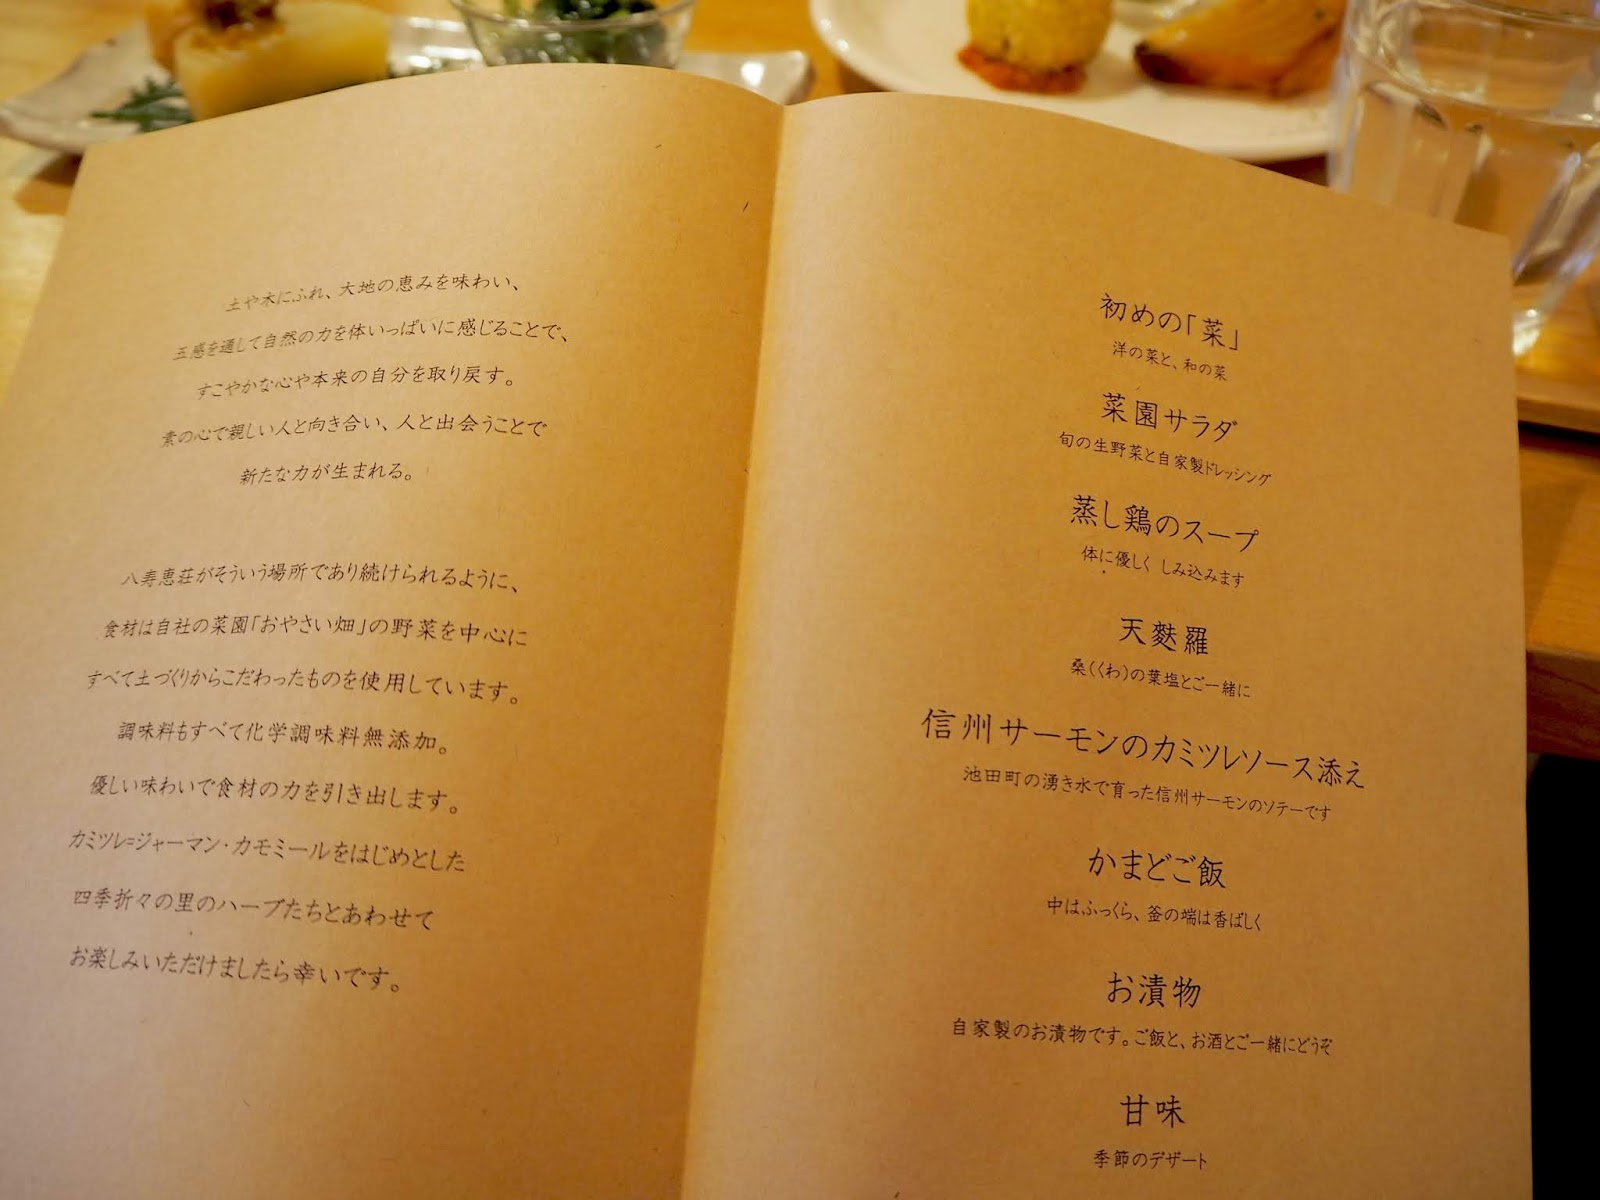 土や木にふれ、大地の恵みを味わい、
五感を通して自然の力を体いっぱいに感じることで、
すこやかな心や本来の自分を取り戻す。
素の心で親しい人と向き合い、人と出会うことで
新たな力が生まれる。
八寿恵荘がそういう場所であり続けられるように、
食材は自社の菜園「おやさい畑」の野菜を中心に
すべて土づくりからこだわったものを使用しています。
調味料もすべて化学調味料無添加。
優しい味わいで食材の力を引き出します。
カミツレ=ジャーマン・カモミールをはじめとした
四季折々の里のハーブたちとあわせて
お楽しみいただけましたら幸いです。
初めの「菜」
洋の菜と、和の菜
菜園サラダ
旬の生野菜と自家製ドレッシング
蒸し鶏のスープ
体に優しく しみ込みます
天麩羅
桑(くわ)の葉塩とご一緒に
信州サーモンのカミツレソース添え
池田町の湧き水で育った信州サーモンのソテーです
かまどご飯
中はふっくら、釜の端は香ばしく
お漬物
自家製のお漬物です。ご飯と、お酒とご一緒にどうぞ
甘味
季節のデザート